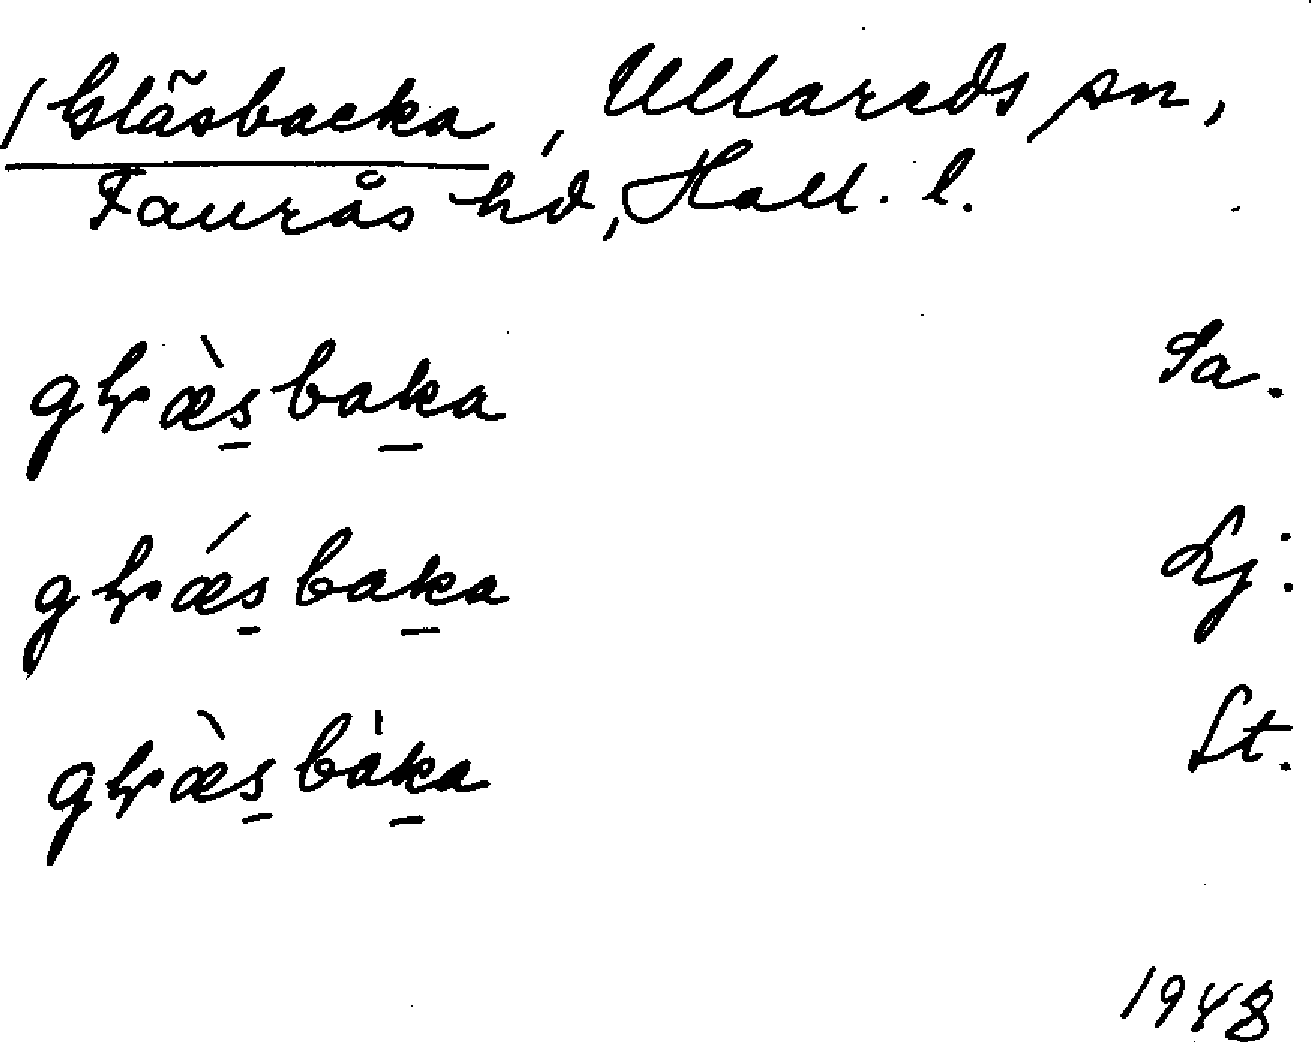 / Gläsbacka, Ullareds sn,
Faurås hd, Hall. l.
glræ̀s̲bak̲a Sa.
glrǽs̲bak̲a Lj.
glræ̀s̲bàk̲a St.
1948